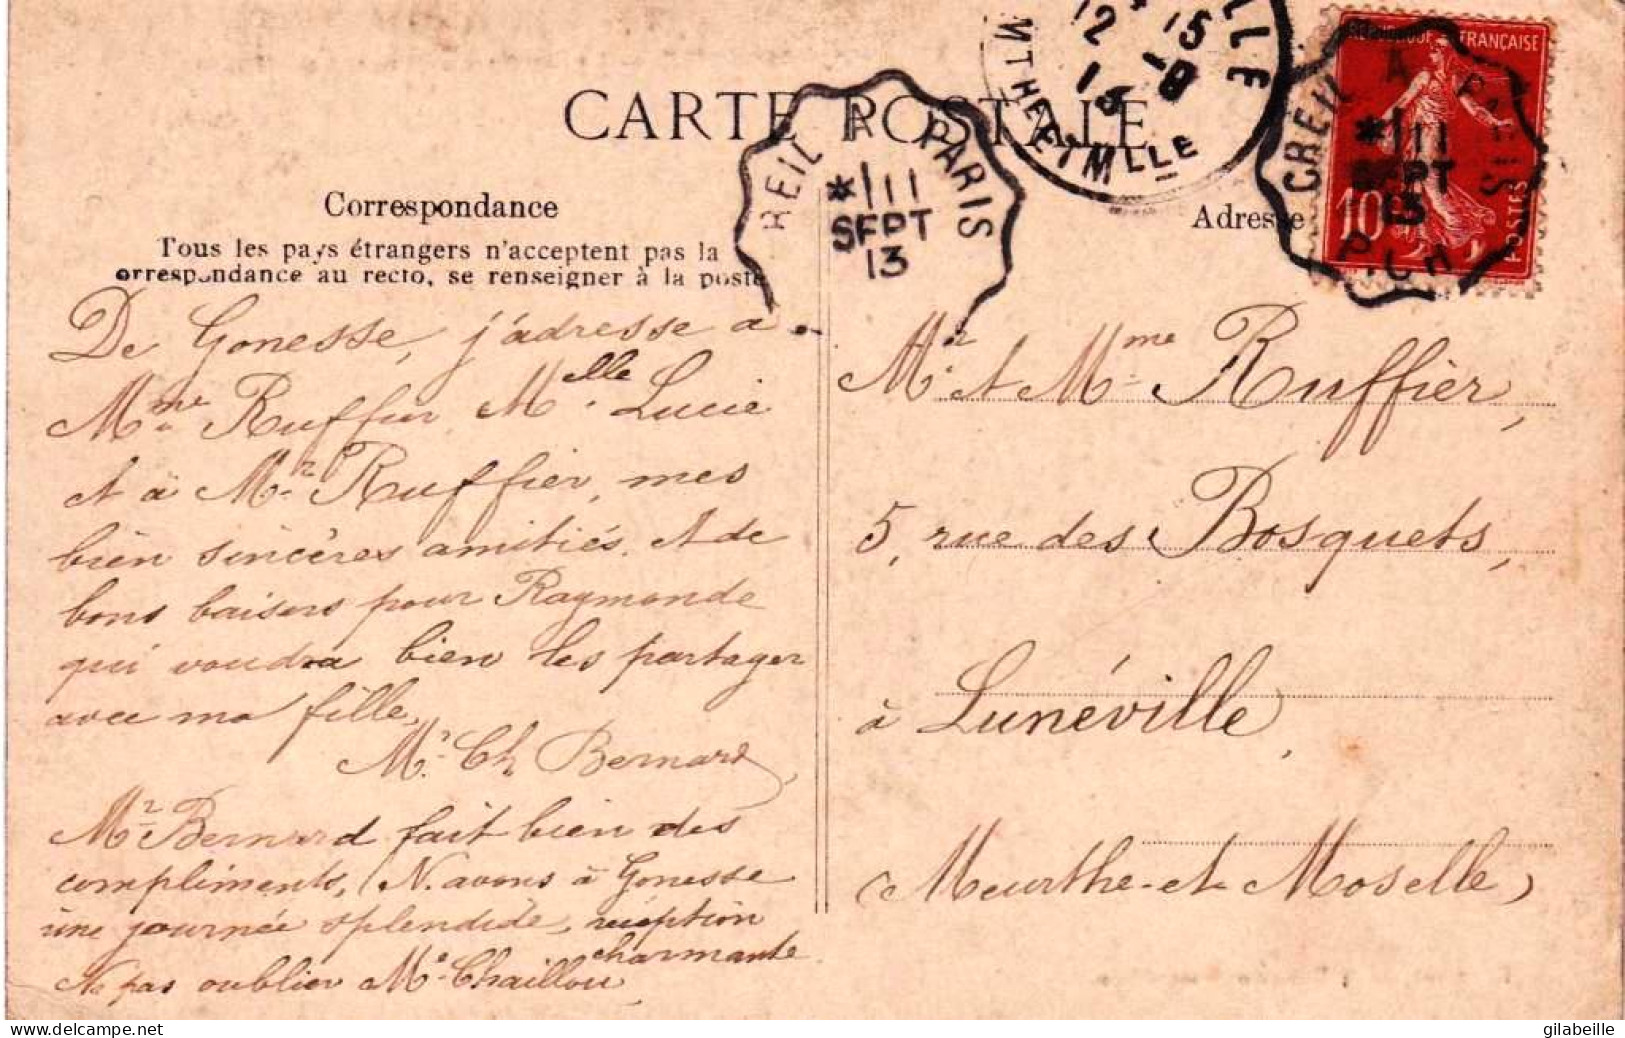 CARTE POSTALE
Correspondance
Tous les pays étrangers n'acceptent pas la
orrespondance au recto, se renseigner à la poste
De Gonesse, j'adresse a
Mme Ruffier, Melle Lucie
et à Mr Ruffier, mes
bien sincères amitiés. Et de
bons baisers pour Raymonde
qui voudra bien les partager
avec ma fille,
Ch Bernard,
Mr Bernard fait bien des
compliments, N. avons à Gonesse
une journée splendide, réception
charmante
Ne pas oublier Me Chaillou,
Adresse
Mr et Mme Ruffier,
5, rue des Bosquets,
à Lunéville,
(Meurthe-et-Moselle)
REIL A PARIS
*/11
SEPT
13
LLE
12 * 15
-9
13
MTHE ET MLLE
CREIL A PARIS
*/11
SEPT
13
REPUBLIQUE FRANÇAISE
10c
POSTES
© www.delcampe.net
gilabeille